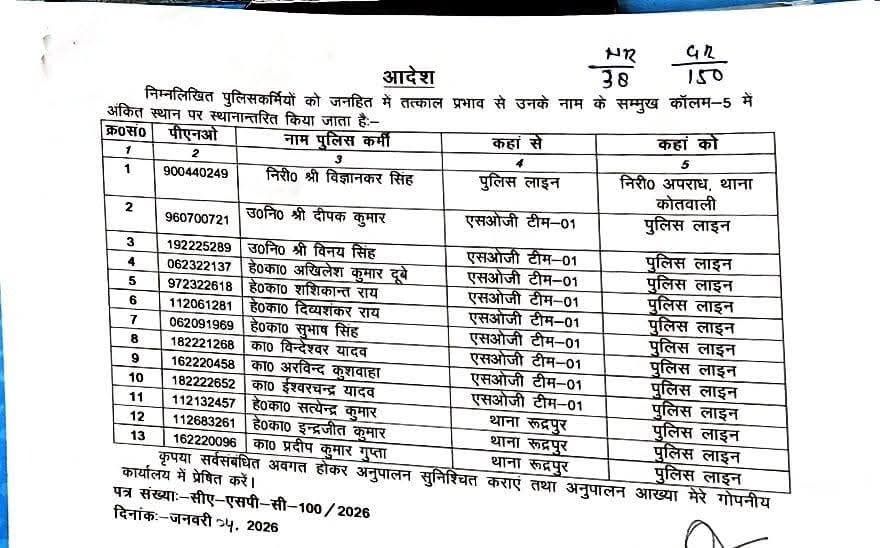 NR GR
38 150
आदेश
निम्नलिखित पुलिसकर्मियों को जनहित में तत्काल प्रभाव से उनके नाम के सम्मुख कॉलम-5 में
अंकित स्थान पर स्थानान्तरित किया जाता हैः-
क्र0सं0 पीएनओ नाम पुलिस कर्मी कहां से कहां को
1 2 3 4 5
1 900440249 निरी0 श्री विज्ञानकर सिंह पुलिस लाइन निरी0 अपराध, थाना
कोतवाली
2 960700721 उ0नि0 श्री दीपक कुमार एसओजी टीम-01 पुलिस लाइन
3 192225289 उ0नि0 श्री विनय सिंह एसओजी टीम-01 पुलिस लाइन
4 062322137 हे0का0 अखिलेश कुमार दूबे एसओजी टीम-01 पुलिस लाइन
5 972322618 हे0का0 शशिकान्त राय एसओजी टीम-01 पुलिस लाइन
6 112061281 हे0का0 दिव्यशंकर राय एसओजी टीम-01 पुलिस लाइन
7 062091969 हे0का0 सुभाष सिंह एसओजी टीम-01 पुलिस लाइन
8 182221268 का0 विन्देश्वर यादव एसओजी टीम-01 पुलिस लाइन
9 162220458 का0 अरविन्द कुशवाहा एसओजी टीम-01 पुलिस लाइन
10 182222652 का0 ईश्वरचन्द्र यादव एसओजी टीम-01 पुलिस लाइन
11 112132457 हे0का0 सत्येन्द्र कुमार थाना रूद्रपुर पुलिस लाइन
12 112683261 हे0का0 इन्द्रजीत कुमार थाना रूद्रपुर पुलिस लाइन
13 162220096 का0 प्रदीप कुमार गुप्ता थाना रूद्रपुर पुलिस लाइन
कृपया सर्वसंबंधित अवगत होकर अनुपालन सुनिश्चित कराएं तथा अनुपालन आख्या मेरे गोपनीय
कार्यालय में प्रेषित करें।
पत्र संख्याः-सीए-एसपी-सी-100/2026
दिनांकः-जनवरी २५, 2026